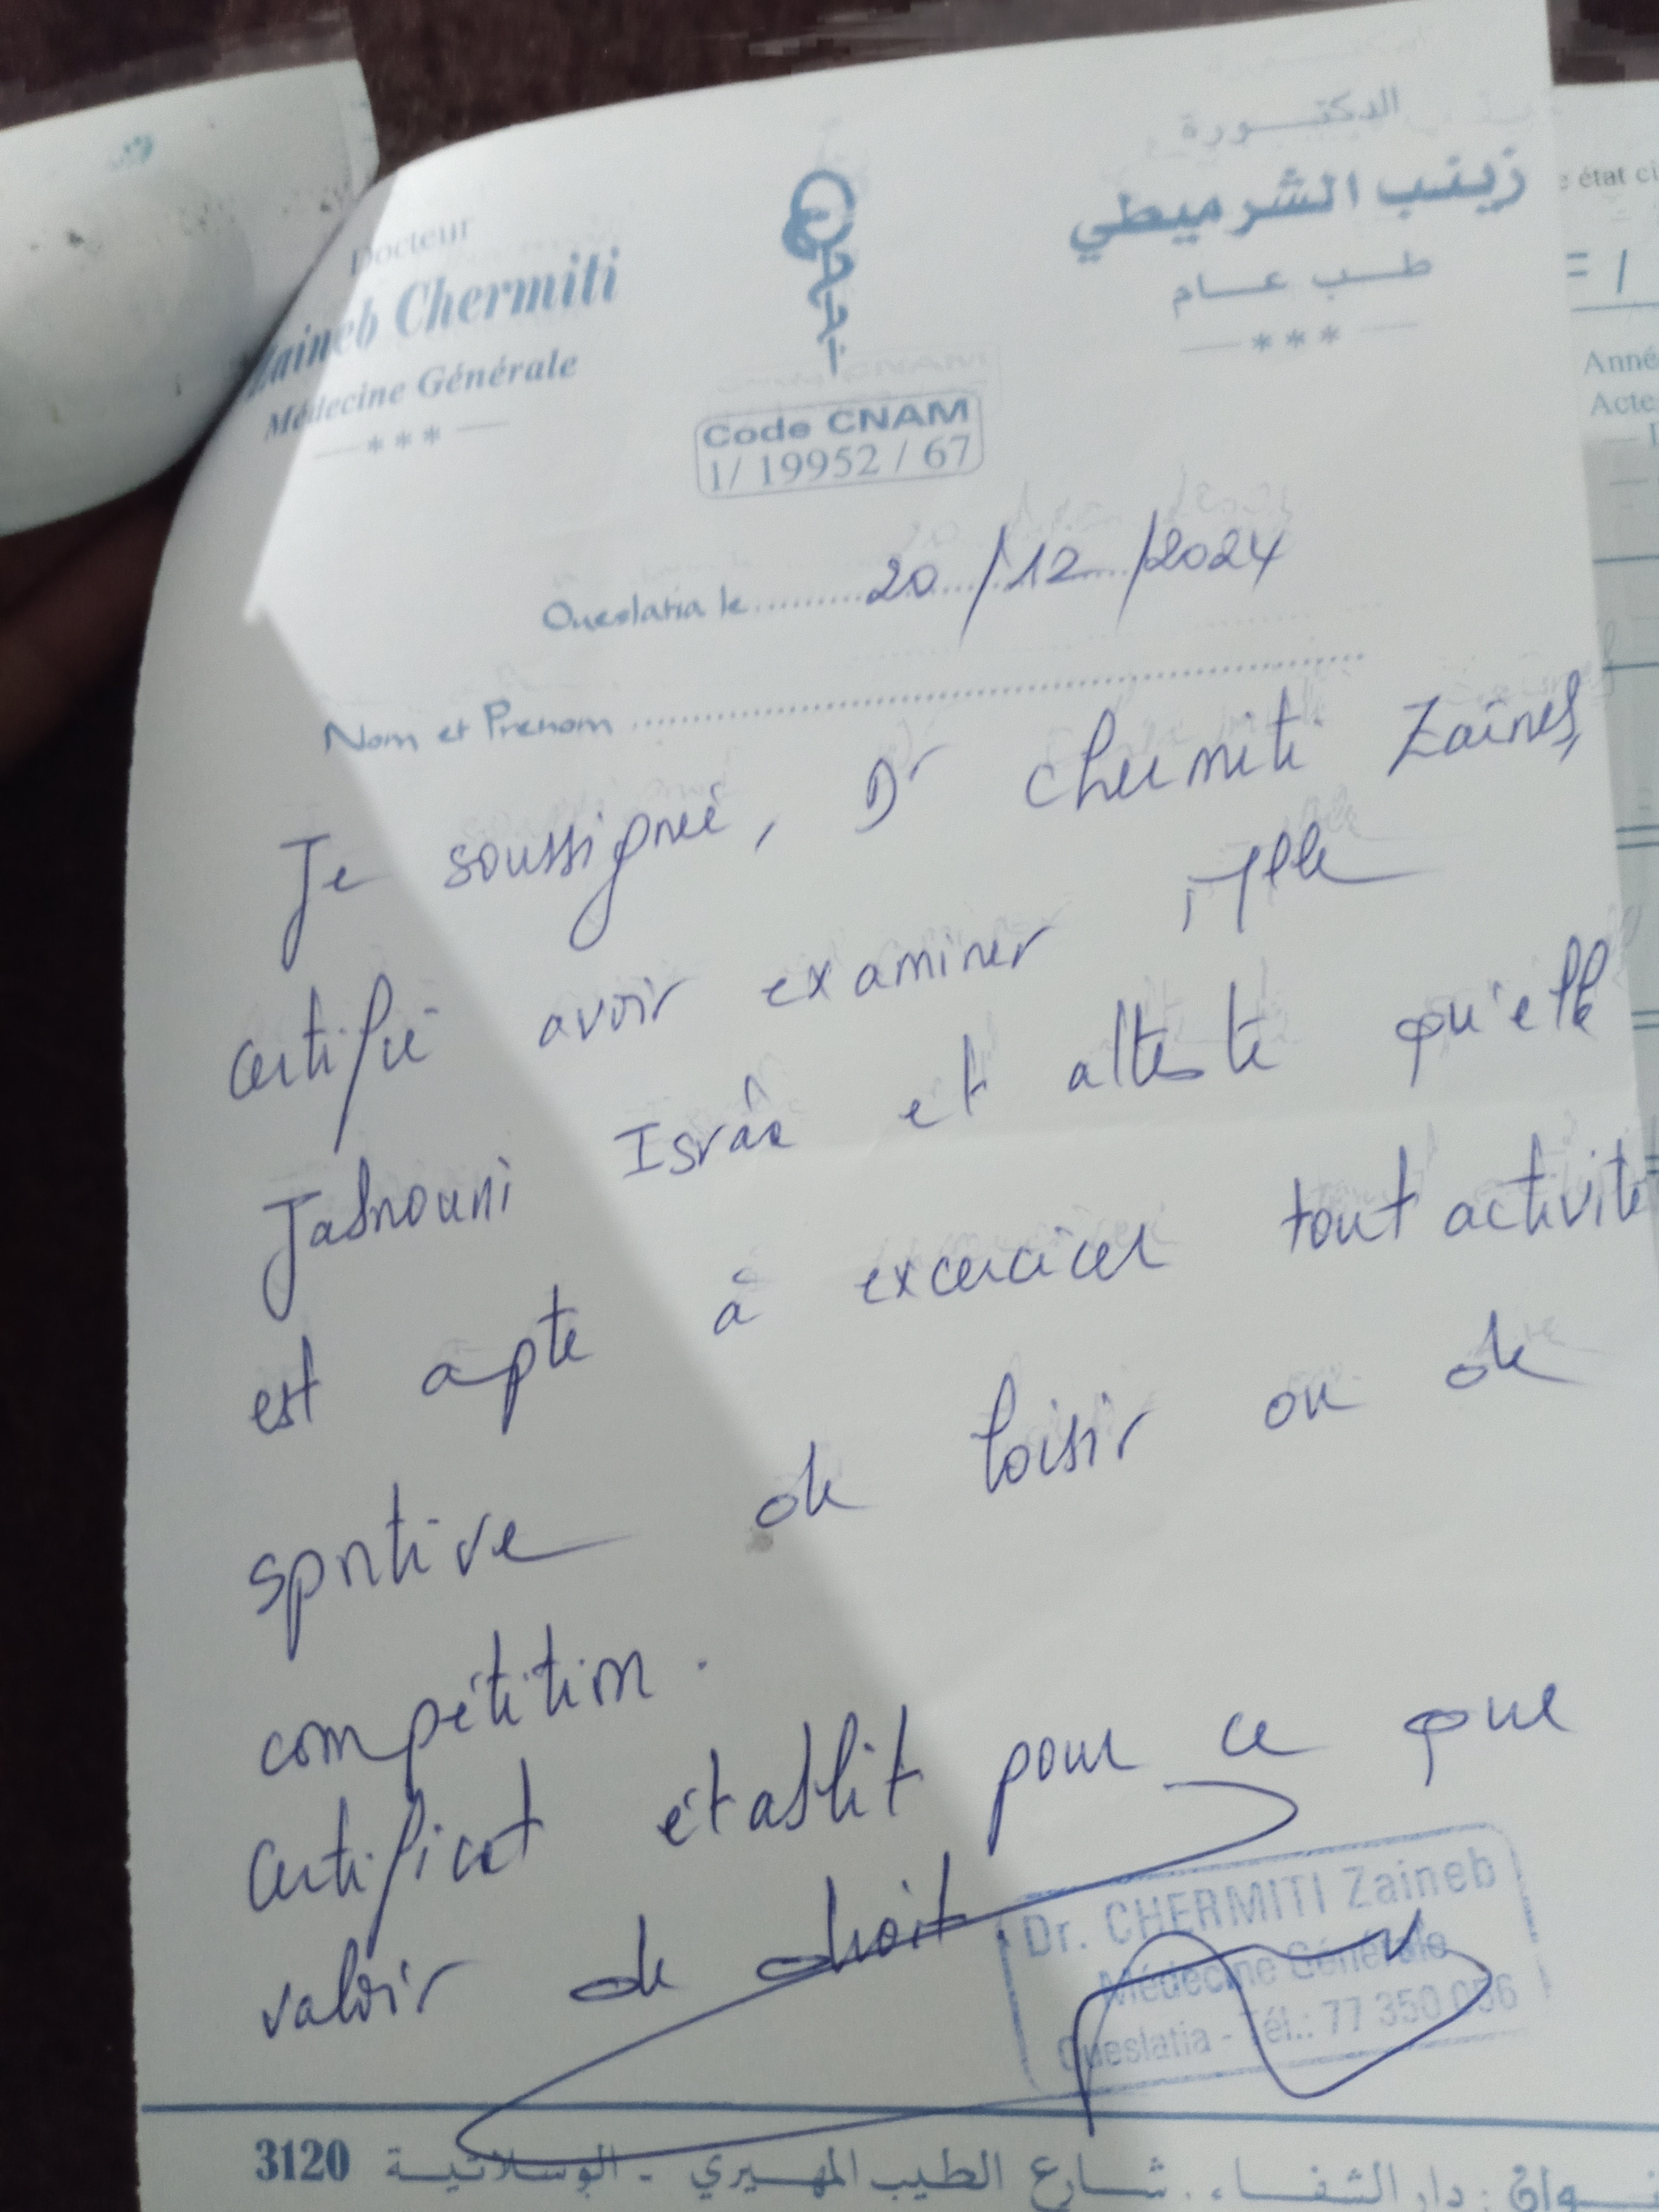 Docteur
Zaineb Chermiti
Médecine Générale
— *** —
الدكتورة
زينب الشرميطي
طب عام
— *** —
Code CNAM
1/ 19952 / 67
Oueslatia le .......... 20 / 12 / 2024
Nom et Prenom ..........
Je soussignée, Dr Chermiti Zaineb,
certifie avoir examiner Mlle
Jabnouni Israa et atteste qu'elle
est apte à excercicer tout activité
sportive de loisir ou de
compétition.
Certificat établit pour ce que
valoir de droit
Dr. CHERMITI Zaineb
Médecine Générale
Oueslatia - Tél.: 77 350 056
دار الشفاء، شارع الطيب المهيري - الوسلاتية 3120
e état ci
= 1
Anné
Acte